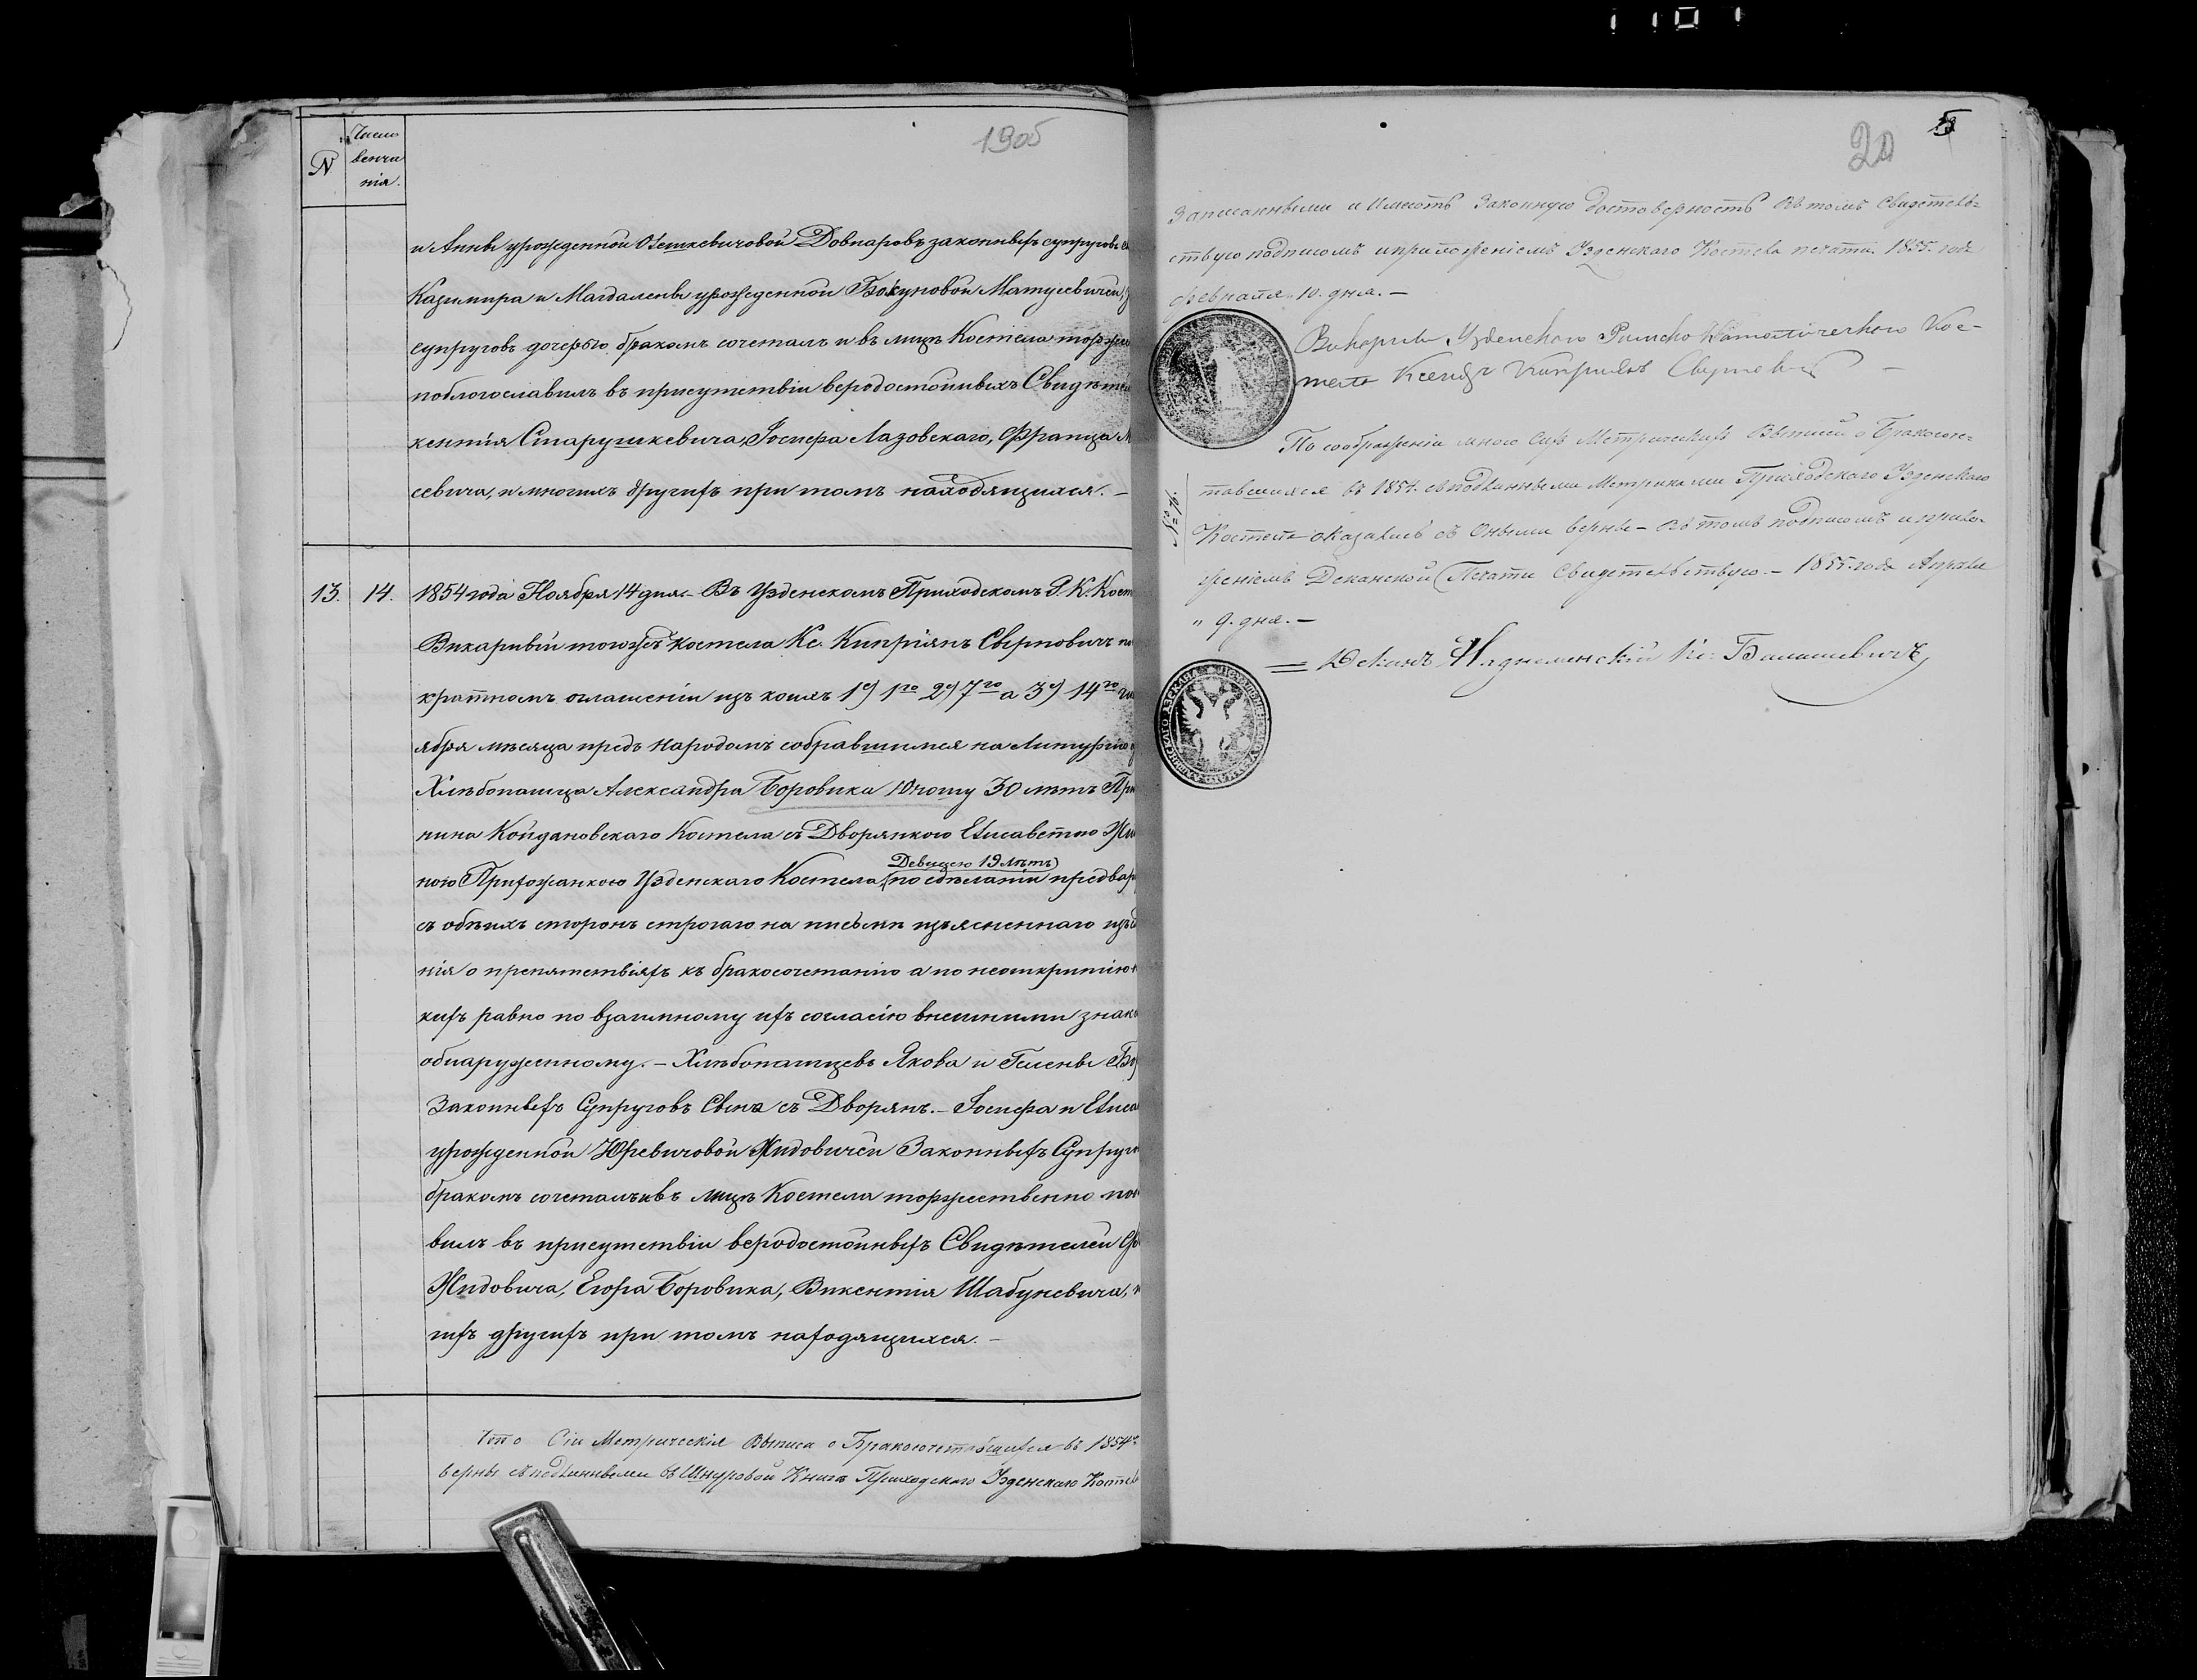 N
Число
венча
нія.
19об
и Анны урожденной Олешкевичовой Довнаровъ законныхъ супруговъ
Казимира и Магдалены урожденной Бокуновой Матусевичей
супруговъ дочерью бракомъ сочеталъ и въ лицѣ Костела
поблогославилъ въ присутствіи веродостойныхъ
кентія Старушкевича, Іосифа Лазовскаго, Франца
севича, и многихъ другихъ при томъ находящихся. –
13.
14.
1854 года Ноября 14 дня. – Въ Узденскомъ Приходскомъ Р. К.
Викарный тогожъ костела Кс. Кипріянъ Свирновичъ
кратномъ оглашеніи изъ коихъ 1е) 1го 2е) 7го а 3е) 14го
ября мѣсяца предъ Народомъ собравшимся на Литургію
Хлѣбопашца Александра Боровика Юношу 30 лѣтъ
нина Койдановскаго Костела съ Дворянкою Елисаветою
Девицею 19 лѣтъ
ною Прихожанкою Узденскаго Костела, по сдѣланіи
съ обѣихъ сторонъ строгаго на письмѣ изъясненнаго
нія о препятствіяхъ къ бракосочетанію а по неоткритію
кихъ равно по взаимному ихъ согласію внешними
обнаруженному. – Хлѣбопашцевъ Якова и Гелены
Законныхъ Супруговъ Сына съ Дворянъ. – Іосифа и
урожденной Юревичовой Жидовичей Законныхъ
бракомъ сочеталъ и въ лицѣ Костела торжественно
вилъ въ присутствіи веродостойныхъ Свидѣтелей
Жидовича, Егора Боровика, Викентія Шабуневича,
гихъ другихъ при томъ находящихся. –
Что Сіи Метрическія Выписи о въ 1854
верны съ подлинными въ Шнуровой Книгѣ Приходскаго Узденскаго
20
5
Записанными и Имеютъ Законную достоверность въ томъ Свидетель-
ствую подписомъ и приложеніемъ Узденскаго Костела печати. 1855. года
февраля 10. дня. –
Викарный Узденскаго Римско Католическаго Кос-
тела Ксендзъ Кипріянъ
По соображеніи мною Сихъ Метрическихъ Выписей о Бракосоче-
тавшихся въ 1854. съ подлинными Метриками Приходскаго Узденскаго
Костела оказались съ Оными верны – въ томъ подписомъ и прило-
женіемъ Деканской Печати Свидетельствую. – 1855. года Апреля
" 9. дня. –
Деканъ Надниеменскій Кс: